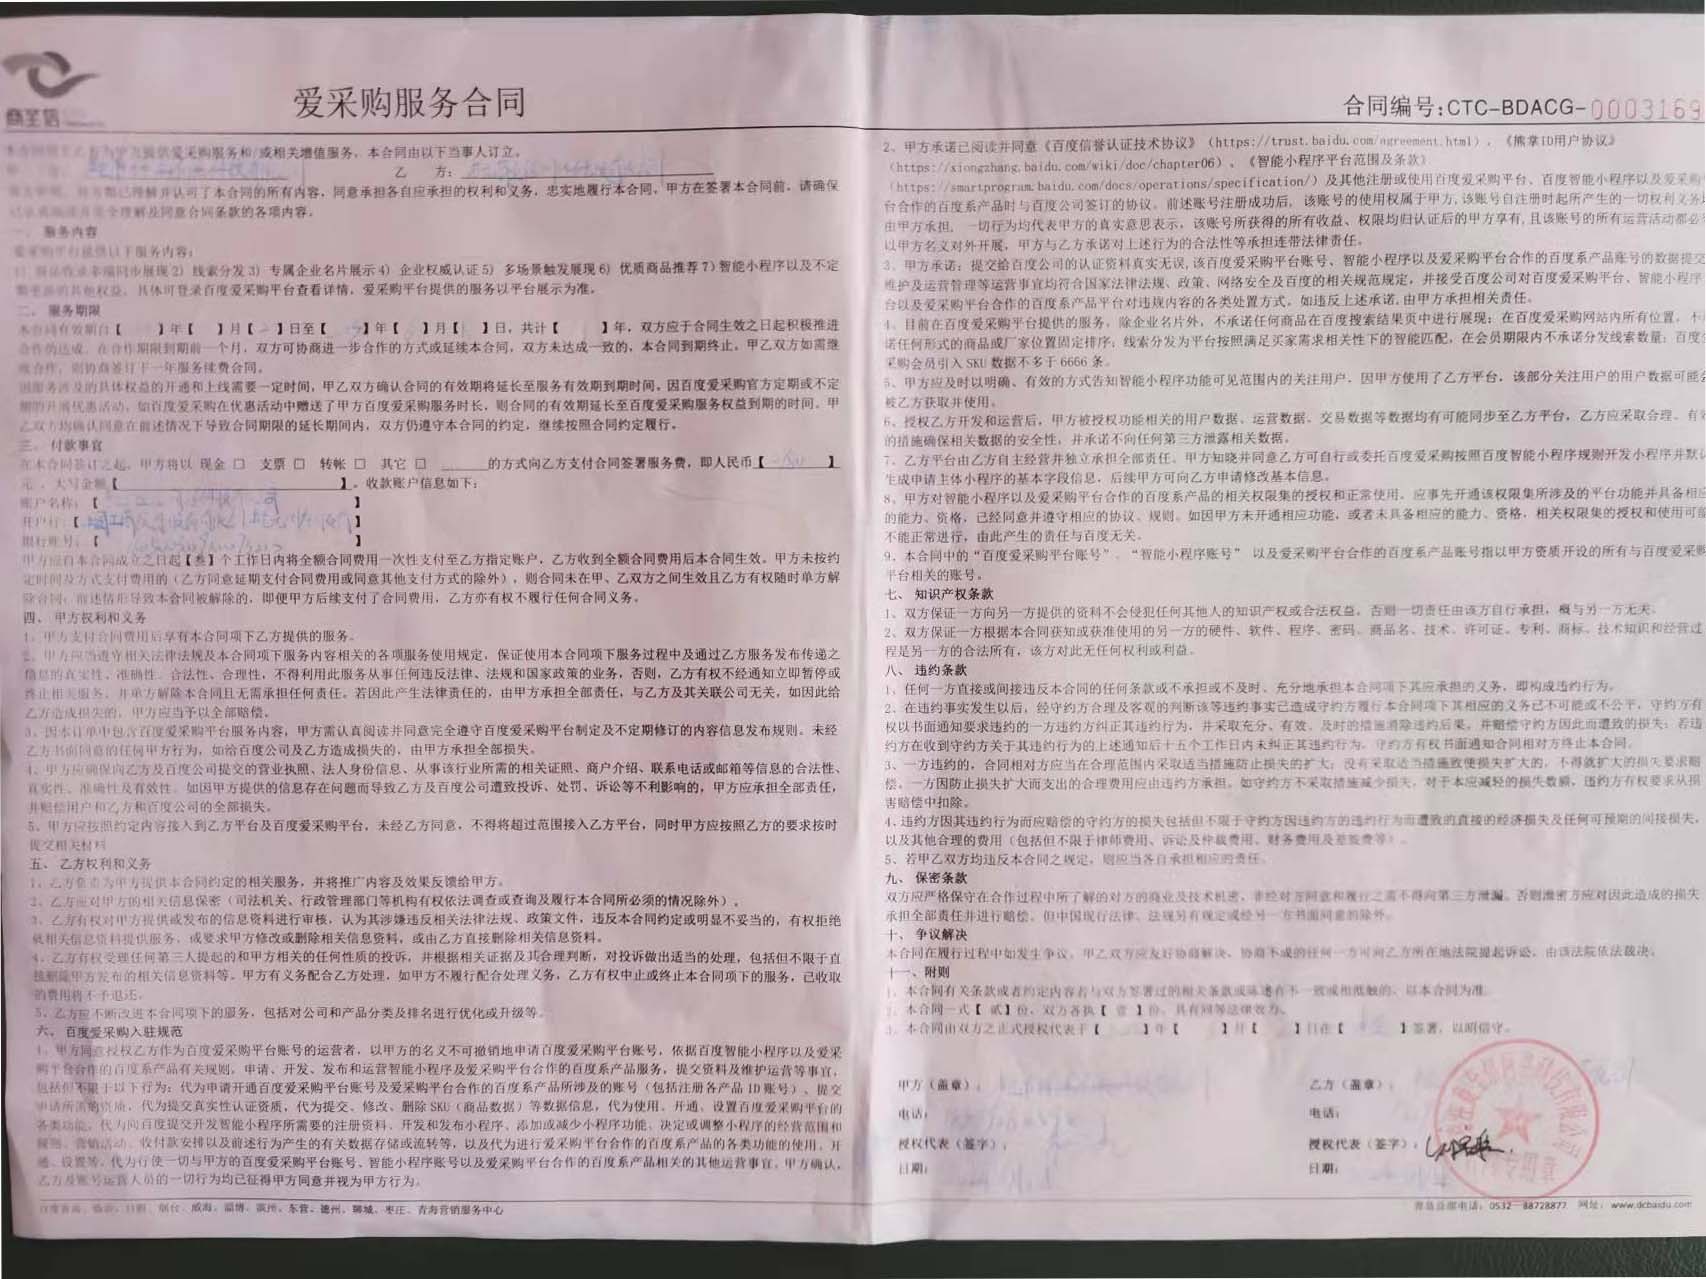 爱采购服务合同
合同编号:CTC-BDACG-0003169
供爱采购服务和/或相关增值服务。本合同由以下当事人订立。
乙 方:
已理解并认可了本合同的所有内容，同意承担各自应承担的权利和义务，忠实地履行本合同。甲方在签署本合同前，请确保
理解及同意合同条款的各项内容。
一、服务内容
爱采购平台提供以下服务内容:
同步展现2）线索分发3）专属企业名片展示4）企业权威认证5）多场景触发展现6）优质商品推荐7)智能小程序以及不定
期更新的其他权益，具体可登录百度爱采购平台查看详情，爱采购平台提供的服务以平台展示为准。
二、服务期限
本合同有效期自【 】年【 】月【 】日至【 】年【 】月【 】日，共计【 】年，双方应于合同生效之日起积极推进
合作的达成。在合作期限到期前一个月，双方可协商进一步合作的方式或延续本合同，双方未达成一致的，本合同到期终止。甲乙双方如需继
续合作，则协商签订下一年服务续费合同。
因服务涉及的具体权益的开通和上线需要一定时间，甲乙双方确认合同的有效期将延长至服务有效期到期时间。因百度爱采购官方定期或不定
期的开展优惠活动，如百度爱采购在优惠活动中赠送了甲方百度爱采购服务时长，则合同的有效期延长至百度爱采购服务权益到期的时间。甲
乙双方均确认同意在前述情况下导致合同期限的延长期间内，双方仍遵守本合同的约定，继续按照合同约定履行。
三、付款事宜
在本合同签订之起，甲方将以 现金 □ 支票 □ 转帐 □ 其它 □ ______的方式向乙方支付合同签署服务费，即人民币【 】
元，大写金额【 】。收款账户信息如下:
账户名称:【 】
开户行:【 】
银行账号:【 】
甲方应自本合同成立之日起【叁】个工作日内将全额合同费用一次性支付至乙方指定账户，乙方收到全额合同费用后本合同生效。甲方未按约
定时间及方式支付费用的（乙方同意延期支付合同费用或同意其他支付方式的除外），则合同未在甲、乙双方之间生效且乙方有权随时单方解
除合同；前述情形导致本合同被解除的，即便甲方后续支付了合同费用，乙方亦有权不履行任何合同义务。
四、甲方权利和义务
1、甲方支付合同费用后享有本合同项下乙方提供的服务。
2、甲方应当遵守相关法律法规及本合同项下服务内容相关的各项服务使用规定，保证使用本合同项下服务过程中及通过乙方服务发布传递之
信息的真实性、准确性、合法性、合理性，不得利用此服务从事任何违反法律、法规和国家政策的业务，否则，乙方有权不经通知立即暂停或
终止相关服务，并单方解除本合同且无需承担任何责任。若因此产生法律责任的，由甲方承担全部责任，与乙方及其关联公司无关，如因此给
乙方造成损失的，甲方应当予以全部赔偿。
3、因本订单中包含百度爱采购平台服务内容，甲方需认真阅读并同意完全遵守百度爱采购平台制定及不定期修订的内容信息发布规则。未经
乙方书面同意的任何甲方行为，如给百度公司及乙方造成损失的，由甲方承担全部损失。
4、甲方应确保向乙方及百度公司提交的营业执照、法人身份信息、从事该行业所需的相关证照、商户介绍、联系电话或邮箱等信息的合法性、
真实性、准确性及有效性。如因甲方提供的信息存在问题而导致乙方及百度公司遭致投诉、处罚、诉讼等不利影响的，甲方应承担全部责任，
并赔偿用户和乙方和百度公司的全部损失。
5、甲方应按照约定内容接入到乙方平台及百度爱采购平台，未经乙方同意，不得将超过范围接入乙方平台，同时甲方应按照乙方的要求按时
提交相关材料
五、乙方权利和义务
1、乙方负责为甲方提供本合同约定的相关服务，并将推广内容及效果反馈给甲方。
2、乙方应对甲方的相关信息保密（司法机关、行政管理部门等机构有权依法调查或查询及履行本合同所必须的情况除外）。
3、乙方有权对甲方提供或发布的信息资料进行审核，认为其涉嫌违反相关法律法规、政策文件，违反本合同约定或明显不妥当的，有权拒绝
就相关信息资料提供服务，或要求甲方修改或删除相关信息资料，或由乙方直接删除相关信息资料。
4、乙方有权受理任何第三人提起的和甲方相关的任何性质的投诉，并根据相关证据及其合理判断，对投诉做出适当的处理，包括但不限于直
接删除甲方发布的相关信息资料等。甲方有义务配合乙方处理，如甲方不履行配合处理义务，乙方有权中止或终止本合同项下的服务，已收取
的费用将不予退还。
5、乙方应不断改进本合同项下的服务，包括对公司和产品分类及排名进行优化或升级等。
六、百度爱采购入驻规范
1、甲方同意授权乙方作为百度爱采购平台账号的运营者，以甲方的名义不可撤销地申请百度爱采购平台账号，依据百度智能小程序以及爱采
购平台合作的百度系产品有关规则，申请、开发、发布和运营智能小程序及爱采购平台合作的百度系产品服务，提交资料及维护运营等事宜，
包括但不限于以下行为：代为申请开通百度爱采购平台账号及爱采购平台合作的百度系产品所涉及的账号（包括注册各产品ID账号）、提交
申请所需的资质，代为提交真实性认证资质，代为提交、修改、删除SKU（商品数据）等数据信息，代为使用、开通、设置百度爱采购平台的
各类功能，代为向百度提交开发智能小程序所需要的注册资料、开发和发布小程序、添加或减少小程序功能、决定或调整小程序的经营范围和
规则、营销活动、收付款安排以及前述行为产生的有关数据存储或流转等，以及代为进行爱采购平台合作的百度系产品的各类功能的使用、开
通、设置等，代为行使一切与甲方的百度爱采购平台账号、智能小程序账号以及爱采购平台合作的百度系产品相关的其他运营事宜。甲方确认，
乙方及账号运营人员的一切行为均已征得甲方同意并视为甲方行为。
烟台、威海、淄博、滨州、东营、德州、聊城、枣庄、青海营销服务中心
2、甲方承诺已阅读并同意《百度信誉认证技术协议》（https://trust.baidu.com/agreement.html），《熊掌ID用户协议》
（https://xiongzhang.baidu.com/wiki/doc/chapter06）、《智能小程序平台范围及条款》
（https://smartprogram.baidu.com/docs/operations/specification/）及其他注册或使用百度爱采购平台、百度智能小程序以及爱采购
台合作的百度系产品时与百度公司签订的协议。前述账号注册成功后，该账号的使用权属于甲方,该账号自注册时起所产生的一切权利义务
由甲方承担，一切行为均代表甲方的真实意思表示，该账号所获得的所有收益、权限均归认证后的甲方享有,且该账号的所有运营活动都必
以甲方名义对外开展，甲方与乙方承诺对上述行为的合法性等承担连带法律责任。
3、甲方承诺：提交给百度公司的认证资料真实无误,该百度爱采购平台账号、智能小程序以及爱采购平台合作的百度系产品账号的数据提交
维护及运营管理等运营事宜均符合国家法律法规、政策、网络安全及百度的相关规范规定，并接受百度公司对百度爱采购平台、智能小程序
台以及爱采购平台合作的百度系产品平台对违规内容的各类处置方式。如违反上述承诺,由甲方承担相关责任。
4、目前在百度爱采购平台提供的服务，除企业名片外，不承诺任何商品在百度搜索结果页中进行展现；在百度爱采购网站内所有位置，不
诺任何形式的商品或厂家位置固定排序；线索分发为平台按照满足买家需求相关性下的智能匹配，在会员期限内不承诺分发线索数量；百度
采购会员引入SKU数据不多于6666条。
5、甲方应及时以明确、有效的方式告知智能小程序功能可见范围内的关注用户，因甲方使用了乙方平台，该部分关注用户的用户数据可能
被乙方获取并使用。
6、授权乙方开发和运营后，甲方被授权功能相关的用户数据、运营数据、交易数据等数据均有可能同步至乙方平台，乙方应采取合理、有
的措施确保相关数据的安全性，并承诺不向任何第三方泄露相关数据。
7、乙方平台由乙方自主经营并独立承担全部责任。甲方知晓并同意乙方可自行或委托百度爱采购按照百度智能小程序规则开发小程序并默
生成申请主体小程序的基本字段信息，后续甲方可向乙方申请修改基本信息。
8、甲方对智能小程序以及爱采购平台合作的百度系产品的相关权限集的授权和正常使用，应事先开通该权限集所涉及的平台功能并具备相应
的能力、资格，已经同意并遵守相应的协议、规则。如因甲方未开通相应功能，或者未具备相应的能力、资格，相关权限集的授权和使用可能
不能正常进行，由此产生的责任与百度无关。
9、本合同中的“百度爱采购平台账号”、“智能小程序账号” 以及爱采购平台合作的百度系产品账号指以甲方资质开设的所有与百度爱采购
平台相关的账号。
七、知识产权条款
1、双方保证一方向另一方提供的资料不会侵犯任何其他人的知识产权或合法权益，否则一切责任由该方自行承担，概与另一方无关。
2、双方保证一方根据本合同获知或获准使用的另一方的硬件、软件、程序、密码、商品名、技术、许可证、专利、商标、技术知识和经营过
程是另一方的合法所有，该方对此无任何权利或利益。
八、违约条款
1、任何一方直接或间接违反本合同的任何条款或不承担或不及时、充分地承担本合同项下其应承担的义务，即构成违约行为。
2、在违约事实发生以后，经守约方合理及客观的判断该等违约事实已造成守约方履行本合同项下其相应的义务已不可能或不公平，守约方有
权以书面通知要求违约的一方违约方纠正其违约行为，并采取充分、有效、及时的措施消除违约后果，并赔偿守约方因此而遭致的损失；若违
约方在收到守约方关于其违约行为的上述通知后十五个工作日内未纠正其违约行为，守约方有权书面通知合同相对方终止本合同。
3、一方违约的，合同相对方应当在合理范围内采取适当措施防止损失的扩大；没有采取适当措施致使损失扩大的，不得就扩大的损失要求赔
偿。一方因防止损失扩大而支出的合理费用应由违约方承担。如守约方不采取措施减少损失，对于本应减轻的损失数额，违约方有权要求从损
害赔偿中扣除。
4、违约方因其违约行为而应赔偿的守约方的损失包括但不限于守约方因违约方的违约行为而遭致的直接的经济损失及任何可预期的间接损失，
以及其他合理的费用（包括但不限于律师费用、诉讼及仲裁费用、财务费用及差旅费等）。
5、若甲乙双方均违反本合同之规定，则应当各自承担相应的责任。
九、保密条款
双方应严格保守在合作过程中所了解的对方的商业及技术机密，非经对方同意和履行之需不得向第三方泄漏。否则泄密方应对因此造成的损失
承担全部责任并进行赔偿。但中国现行法律、法规另有规定或经另一方书面同意的除外。
十、争议解决
本合同在履行过程中如发生争议，甲乙双方应友好协商解决，协商不成的任何一方可向乙方所在地法院提起诉讼，由该法院依法裁决。
十一、附则
1、本合同有关条款或者约定内容若与双方签署过的相关条款或陈述有不一致或相抵触的，以本合同为准。
2、本合同一式【 贰】份，双方各执【 壹 】份，具有同等法律效力。
3、本合同由双方之正式授权代表于【 】年【 】月【 】日在【 】签署，以昭信守。
甲方（盖章）: 乙方（盖章）:
电话: 电话:
授权代表（签字）: 授权代表（签字）:
日期: 日期:
青岛总部电话: 0532—88728877 网址: www.dcbaidu.com